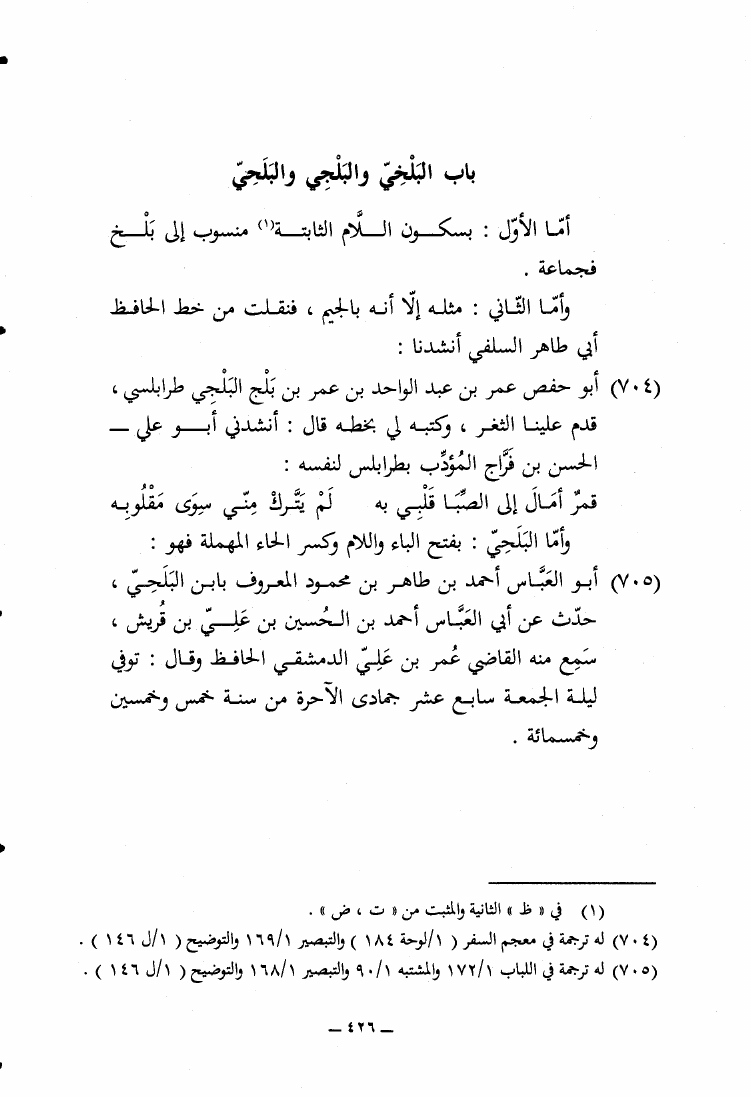 باب البَلْخِيّ والبَلْجِي والبَلَحِيّ
أمّا الأوّل : بسكون اللَّام الثابتة(١) منسوب إلى بَلْخ
فجماعة .
وأمّا الثّاني : مثله إلّا أنه بالجيم ، فنقلت من خط الحافظ
أبي طاهر السلفي أنشدنا :
(٧٠٤) أبو حفص عمر بن عبد الواحد بن عمر بن بَلْج البَلْجي طرابلسي ،
قدم علينا الثغر ، وكتبه لي بخطه قال : أنشدني أبو علي –
الحسن بن فَرَّاج المُؤدِّب بطرابلس لنفسه :
قمرٌ أمَالَ إلى الصِّبَا قَلْبِي به لَمْ يَتَّركْ مِنّي سِوَى مَقْلُوبِه
وأمّا البَلَحِيّ : بفتح الباء واللام وكسر الحاء المهملة فهو :
(٧٠٥) أبو العَبَّاس أحمد بن طاهر بن محمود المعروف بابن البَلَحِيّ ،
حدّث عن أبي العَبَّاس أحمد بن الحُسين بن عَلِيّ بن قُريش ،
سَمِع منه القاضي عُمر بن عَلِيّ الدمشقي الحافظ وقال : توفي
ليلة الجمعة سابع عشر جمادى الآحرة من سنة خمس وخمسين
وخمسمائة .
(١) في « ظ » الثانية والمثبت من « ت ، ض » .
(٧٠٤) له ترجمة في معجم السفر ( ١/لوحة ١٨٤ ) والتبصير ١٦٩/١ والتوضيح ( ١/ل ١٤٦ ) .
(٧٠٥) له ترجمة في اللباب ١٧٢/١ والمشتبه ٩٠/١ والتبصير ١٦٨/١ والتوضيح ( ١/ل ١٤٦ ) .
– ٤٢٦ –